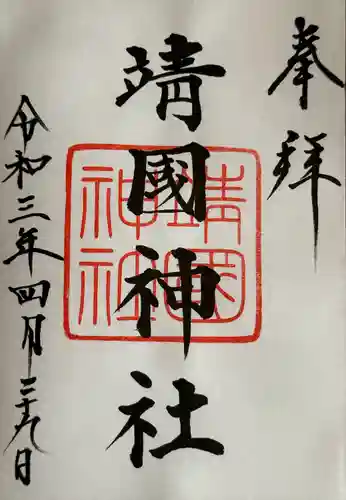 奉拝
靖國神社
靖國神社
令和三年四月二十九日